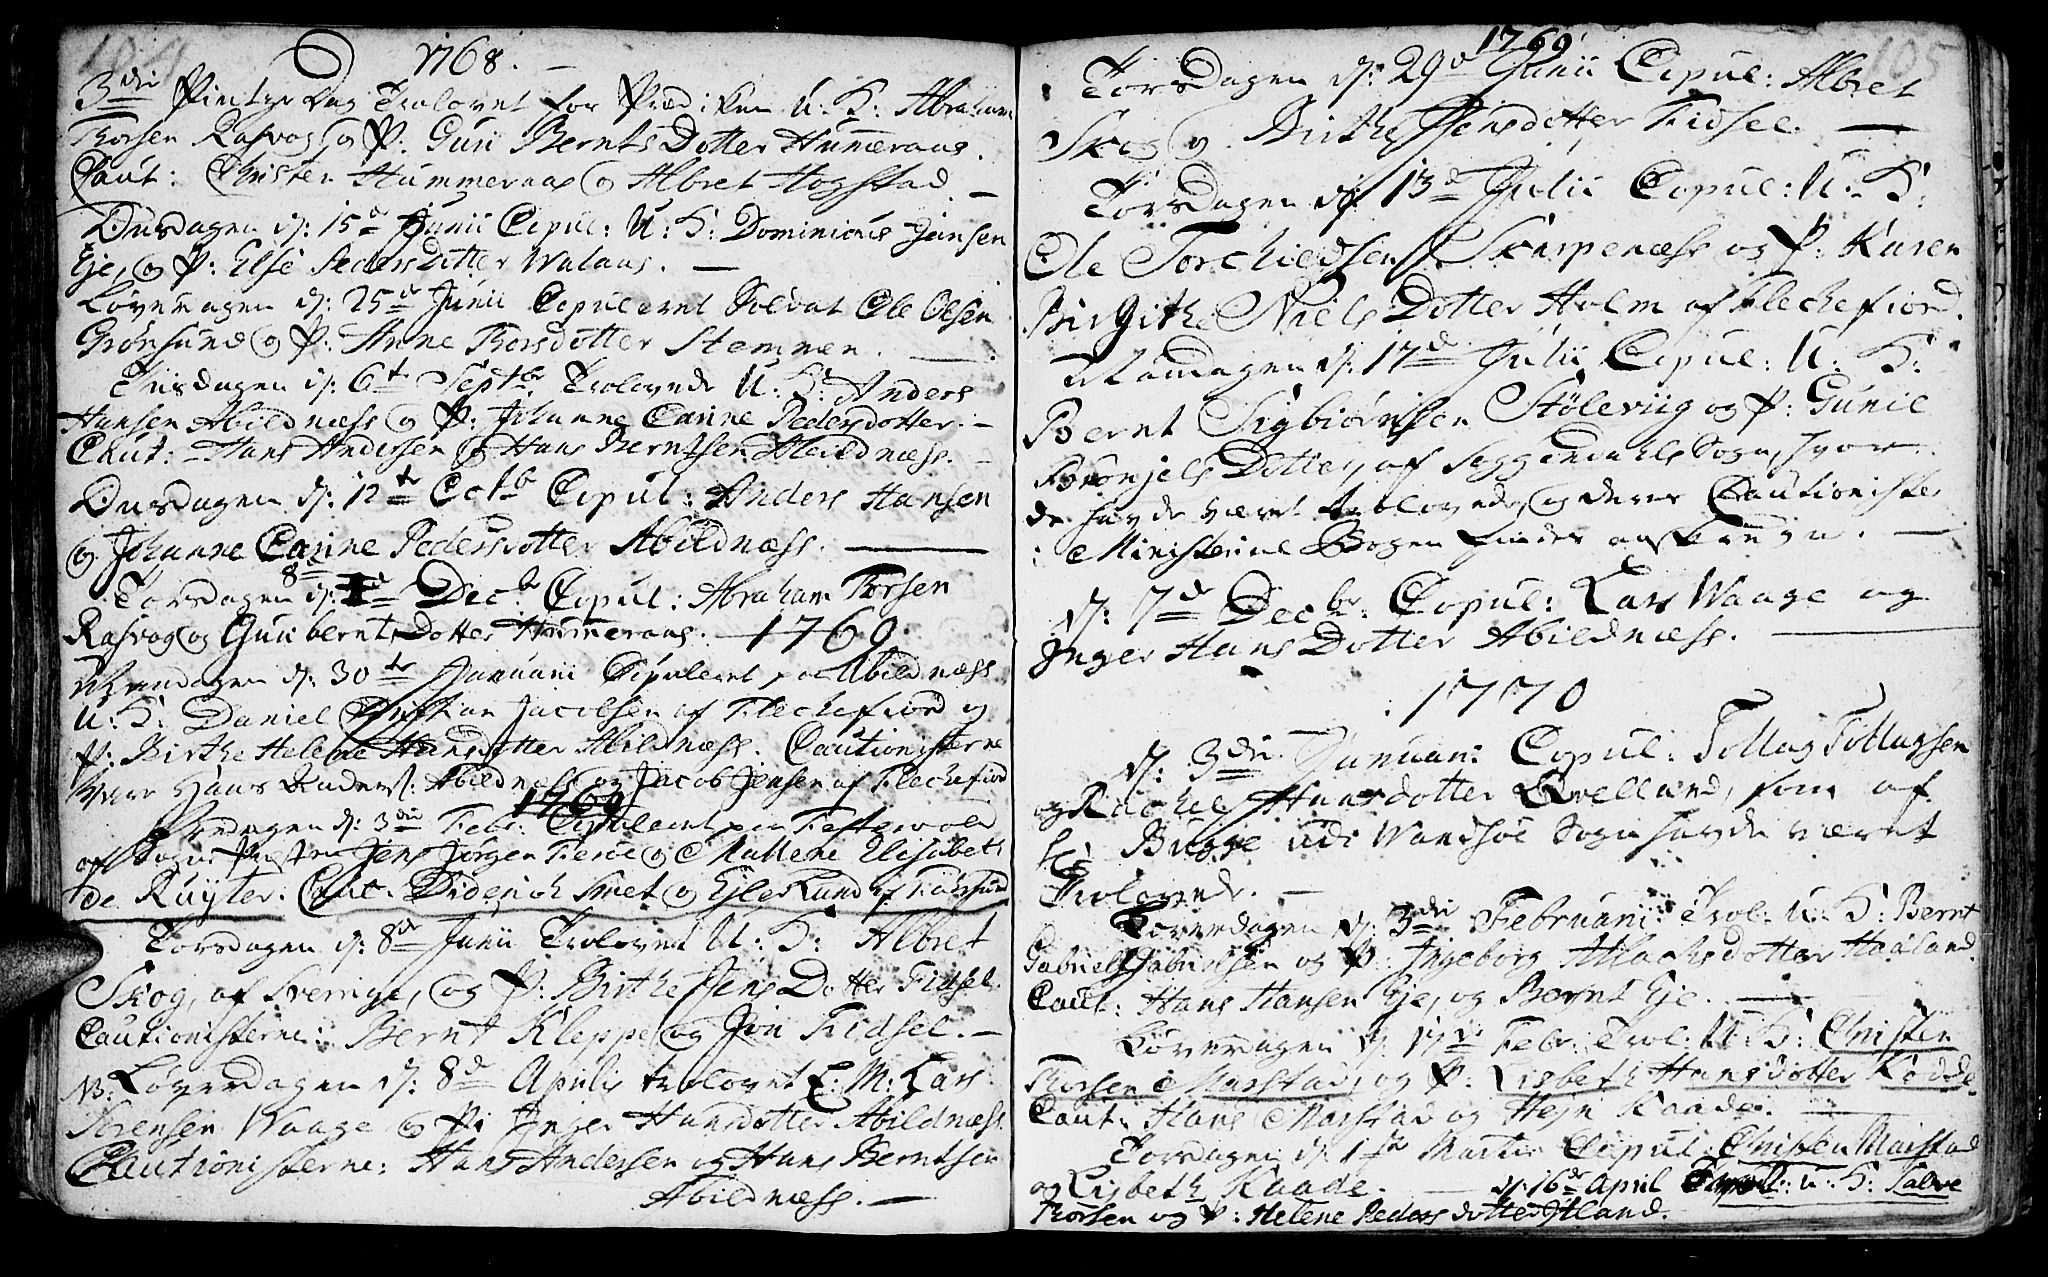 104
1768.
3die Pintze Dag Trolovet for Prædiken U: K: Abraham
Torsen Rasvog og P: Guri Bernts Dotter Hummeraas.
Caut: Christen Hummeraas og Albret Hogstad —
Onsdagen d: 15de Junii Copul: U: K: Dominicus Jensen
Eje, og P: Else Peders Dotter Walaas. —
Løverdagen d: 25de Junii Copuleret Soldat Ole Olsen
Grønsund og P: Anne Torsdotter Stemmen. —
Tirsdagen d: 6te Septbr Trolovede U: K: Anders
Hansen Abildnæss og P: Johanne Carine Pedersdotter. —
Caut: Hans Andersen og Hans Berntsen Abildnæss. —
Onsdagen d: 12te Octb Copul: Anders Hansen
og Johanne Carine Pedersdotter Abildnæss. —
Torsdagen d: 8de Decbr Copul: Abraham Torsen
Rasvog og Guri bernts Dotter Hummeraas. — 1769.
Mandagen d: 30te Januarii Copuleret paa Abildnæss
U: K: Daniel Christian Jacobsen af Flechefiord og
P: Birthe Helene Hansdotter Abildnæss. Cautionisterne
Vare Hans Anders: Abildnæss og Jacob Jensen af Flechefiord
1769
dagen d: 3die Febr: Copuleret paa Festervold
af Sogne Præsten Jens Jørgen og Mallene Elisabeth
de Ruyter. Caut. Diderich Smet og Ejler Lund af Farsund
Torsdagen d: 8de Junii Trolovet U: K: Albret
Skog, af Sverrige, og P: Birthe Jens Dotter Fidsel.
Cautionisterne: Bernt Kleppe og Jon Fidsel. —
NB: Løverdagen d: 8de Aprilis trolovet E: M: Lars
Sørensen Waage og P: Inger Hansdotter Abildnæss.
Cautionisterne: Hans Andersen og Hans Berntsen
Abildnæss. —
105
1769
Torsdagen d: 29de Junii Copul: Albret
Skog og Birthe Jensdotter Fidsel. —
Torsdagen d: 13de Julii Copul: U: K:
Ole Torchiedsen Skarpenæss og P: Karen
Birgithe Niels Dotter Holm af Flechefiord.
Mandagen d: 17de Julii Copul: U: K:
Bernt Sigbiørnsen Stöleviig og P: Gunil
Brönjels Dotter, af Soggendahls Sogn, hvor
de havde været trolovede, og deres Cautionister
i Ministerial Bogen findes anskrevne. —
d: 7de Decbr. Copul: Lars Waage og
Inger Hans Dotter Abildnæss. —
1770
d: 3die Januari Copul: Tollag Tollagsen
og Rachel Hansdotter Qvelland, som af
Hr: Bugge udi Wandsöe Sogn havde været
Trolovede. —
Løverdagen d: 3die Februarii Trol: U: K: Bernt
Gabriel Gabrielsen og P: Ingeborg Aslachsdotter Haaland.
Caut: Hans Hansen Eje, og Bernt Eje. —
Løverdagen d: 17de Febr: Trol: U: K: Christen
Torsen Marstad, og P: Lisbeth Hansdotter Kodde
Caut: Hans Marstad og Hejn Kaade. —
Torsdagen d: 1ste Martii Copul: Christen Marstad
og Lisbeth Kaade. — d: 16de April Trol: U: K: Salve
Torsen og P: Helene Peders dotter Ytland.